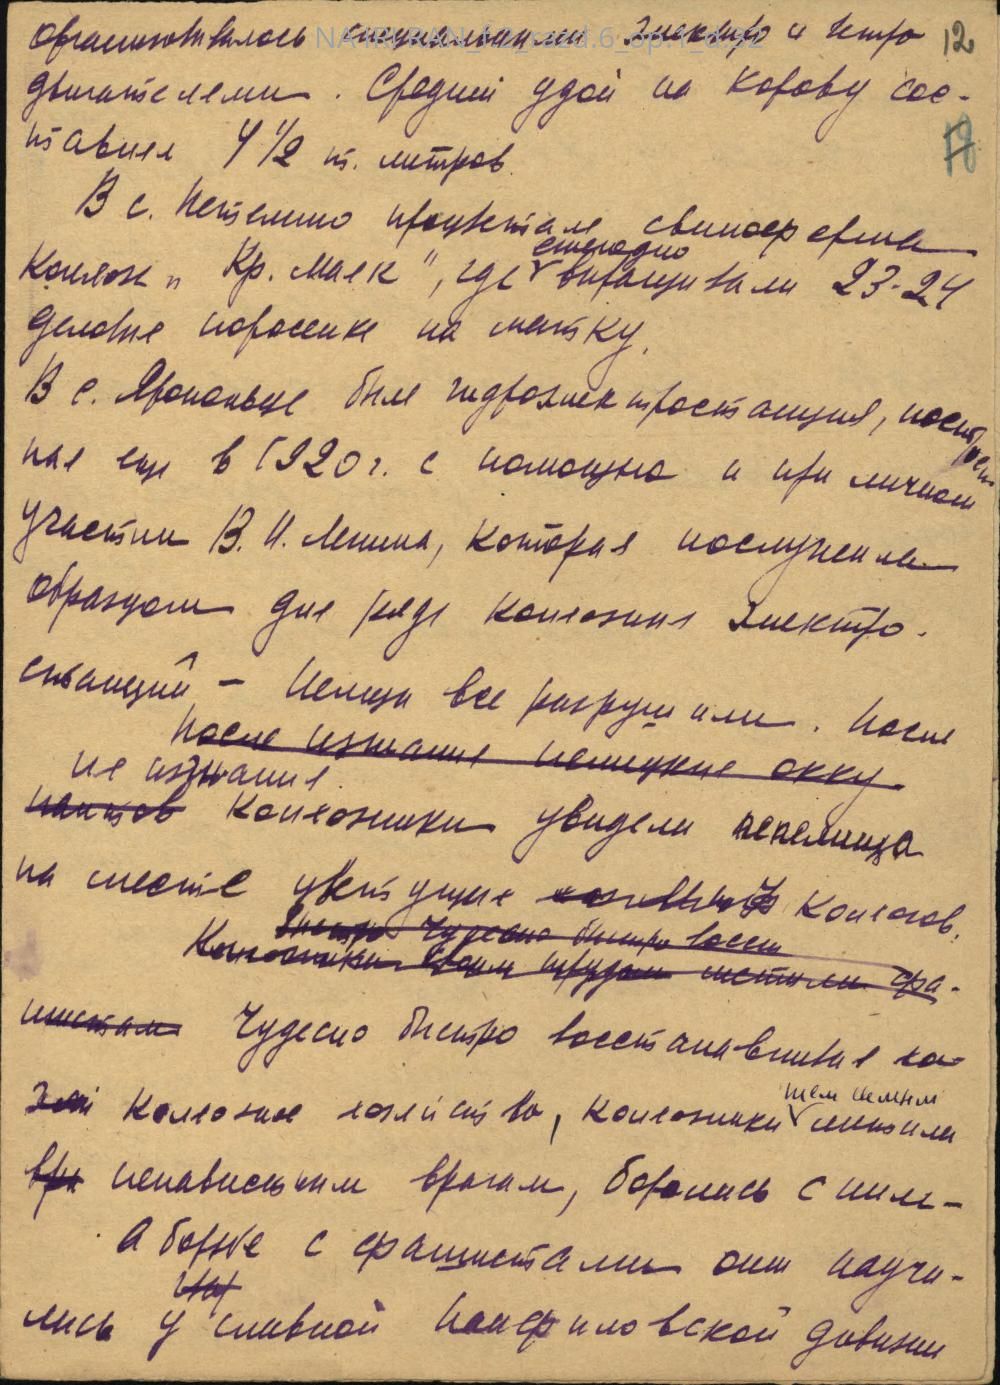 12
электро и
двигателями. Средний удой на корову сос-
тавил 4 1/2 т. литров.
18
В с. Петелино процветала свиноферма
ежегодно
колхоза „Кр. Маяк", где выращивали 23-24
деловых поросенка на матку.
В с. Яропольце была гидроэлектростанция, построен
ная еще в 1920 г. с помощью и при личном
участии В. И. Ленина, которая послужила
образцом для ряда колхозных электро-
станций – Немцы все разрушили. После
После изгнания немецких окку
их изгнания
пантов колхозники увидели пепелища
на месте цветущих колхозов.
Быстро Чудесно быстро восст
Колхозники своим трудом мстили фа-
шистам Чудесно быстро восстанавливая хо-
зяй колхозное хозяйство, колхозники тем самым мстили
вра ненавистным врагам, боролись с ними –
А борьбе с фашистами они научи-
лись у славной Панфиловской дивизии